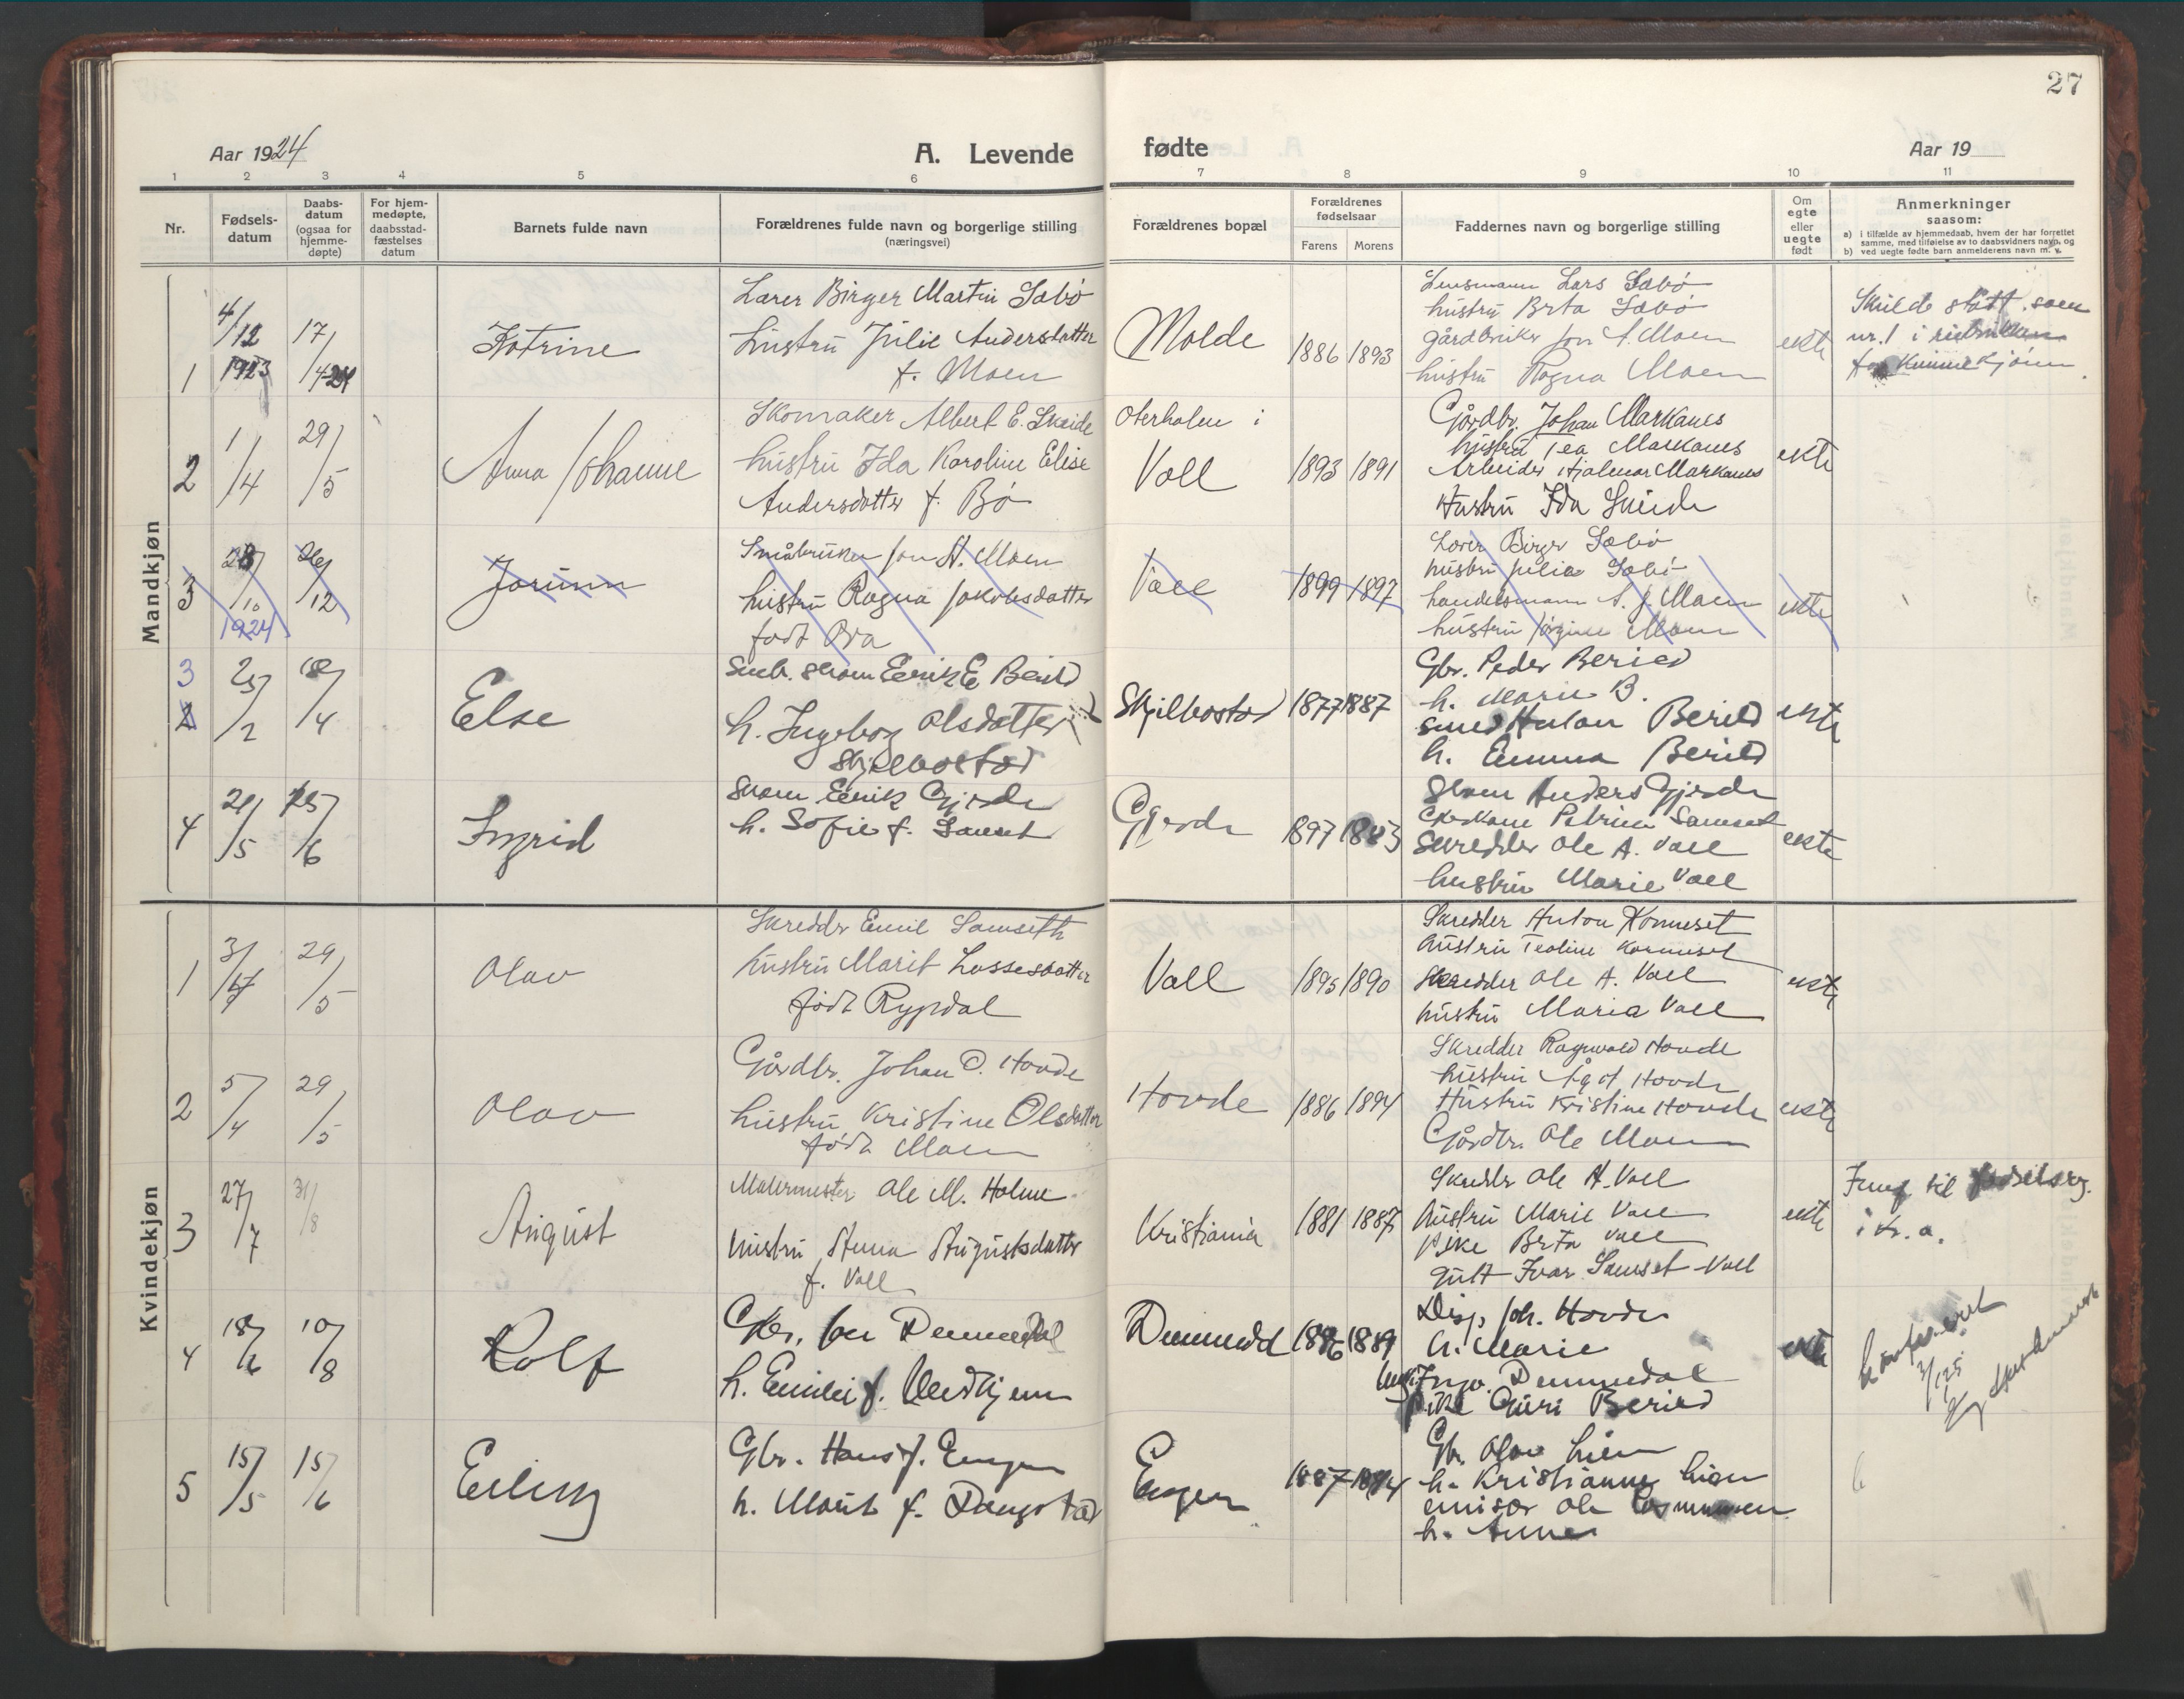 27
Aar 1924
A. Levende
fødte
Aar 19
1 2 3 4 5 6 7 8 9 10 11
Nr.
Fødsels-
datum
Daabs-
datum
(ogsaa for
hjemme-
døpte)
For hjem-
medøpte,
daabsstad-
fæstelses
datum
Barnets fulde navn
Forældrenes fulde navn og borgerlige stilling
(næringsvei)
Forældrenes bopæl
Forældrenes
fødselsaar
Farens Morens
Faddernes navn og borgerlige stilling
Om
egte
eller
uegte
født
Anmerkninger
saasom:
a) i tilfælde av hjemmedaab, hvem der har forrettet
samme, med tilføielse av to daabsvidners navn, og
b) ved uegte fødte barn anmelderens navn m. v.
Mandkjøn
1
4/12
1923
17/4 24
Katrine
Lærer Birger Martin Sæbø
hustru Julie Andersdatter
f. Moen
Molde
1886 1893
Lensmann Lars Sæbø
hustru Brta Sæbø
gårdbruker Jon A. Moen
hustru Ragna Moen
ekte
Skulde stått som
nr. 1 i rubrikken
for kvinnekjønn.
2
1/4
29/5
Anna Johanne
Skomaker Albert E. Skeide
hustru Ida Karoline Elise
Andersdatter f. Bø
Oterholm i
Voll
1893 1891
Gårdbr. Johan Markanes
hustru Tea Markanes
Arbeider Hjalmar Markanes
Hustru Ida Skeide
ekte
3
28/10
1924
26/12
Jorunn
Småbruker Jon A. Moen
hustru Ragna Jakobsdatter
født Bra
Voll
1899 1897
Lærer Birger Sæbø
hustru Julie Sæbø
handelsmann A. J. Moen
hustru Jørgine Moen
ekte
3
25/2
18/4
Else
Eerik E Berild
h. Ingeborg Olsdatter
Skjelbostad
Skjelbostad
1877 1887
Gbr. Peder Berild
h. Marie B.
smed Anton Berild
h. Emma Berild
ekte
4
21/5
15/6
Ingrid
Skom. Eerik Gjerde
h. Sofie f. Samset
Gjerde
1897 1883
Skom Anders Gjerde
Petrine Samset
Skredder Ole A. Voll
hustru Marie Voll
ekte
Kvindekjøn
1
29/5
Olav
Skredder Emil Samseth
hustru Marit Lassesdatter
født Rypdal
Voll
1895 1890
Skredder Anton Kormeset
hustru Teoline Kormeset
Skredder Ole A. Voll
hustru Maria Voll
ekte
2
5/4
29/5
Olav
Gårdbr. Johan O. Hovde
hustru Kristine Olsdatter
født Moen
Hovde
1886 1894
Skredder Ragnvald Hovde
hustru Ågot Hovde
Hustru Kristine Hovde
Gårdbr. Ole Moen
ekte
3
27/7
31/8
August
Malermester Ole M. Holme
hustru Anna Augustsdatter
f. Voll
Kristiania
1881 1887
Skredder Ole A. Voll
hustru Marie Voll
pike Brta Voll
gutt Ivar Samset Voll
ekte
til fødselsreg.
i Kr.a.
4
18/6
10/8
Rolf
Demmedal
h. Emilie f. Medhjem
Demmedal
1886 1889
Disp. Joh. Hovde
h. Marie
Demmedal
pike Guri Berild
ekte
Konfirmert
5
15/5
15/6
Erling
Gbr. Hans J. Engen
h. Marit f. Daugstad
Engen
1887 1884
Gbr. Olav Lien
h. Kristianne Lien
emisær Ole Rasmussen
h. Anne